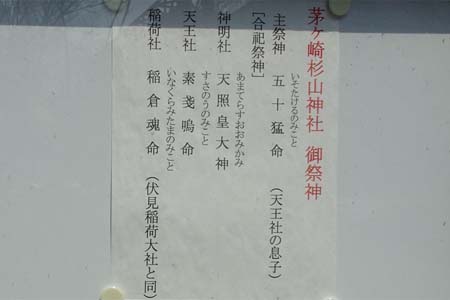 茅ヶ崎杉山神社 御祭神
いそたけるのみこと
主祭神 五十猛命 (天王社の息子)
[合祀祭神]
あまてらすおおみかみ
神明社 天照皇大神
すさのうのみこと
天王社 素戔嗚命
いなくらみたまのみこと
稲荷社 稲倉魂命 (伏見稲荷大社と同)